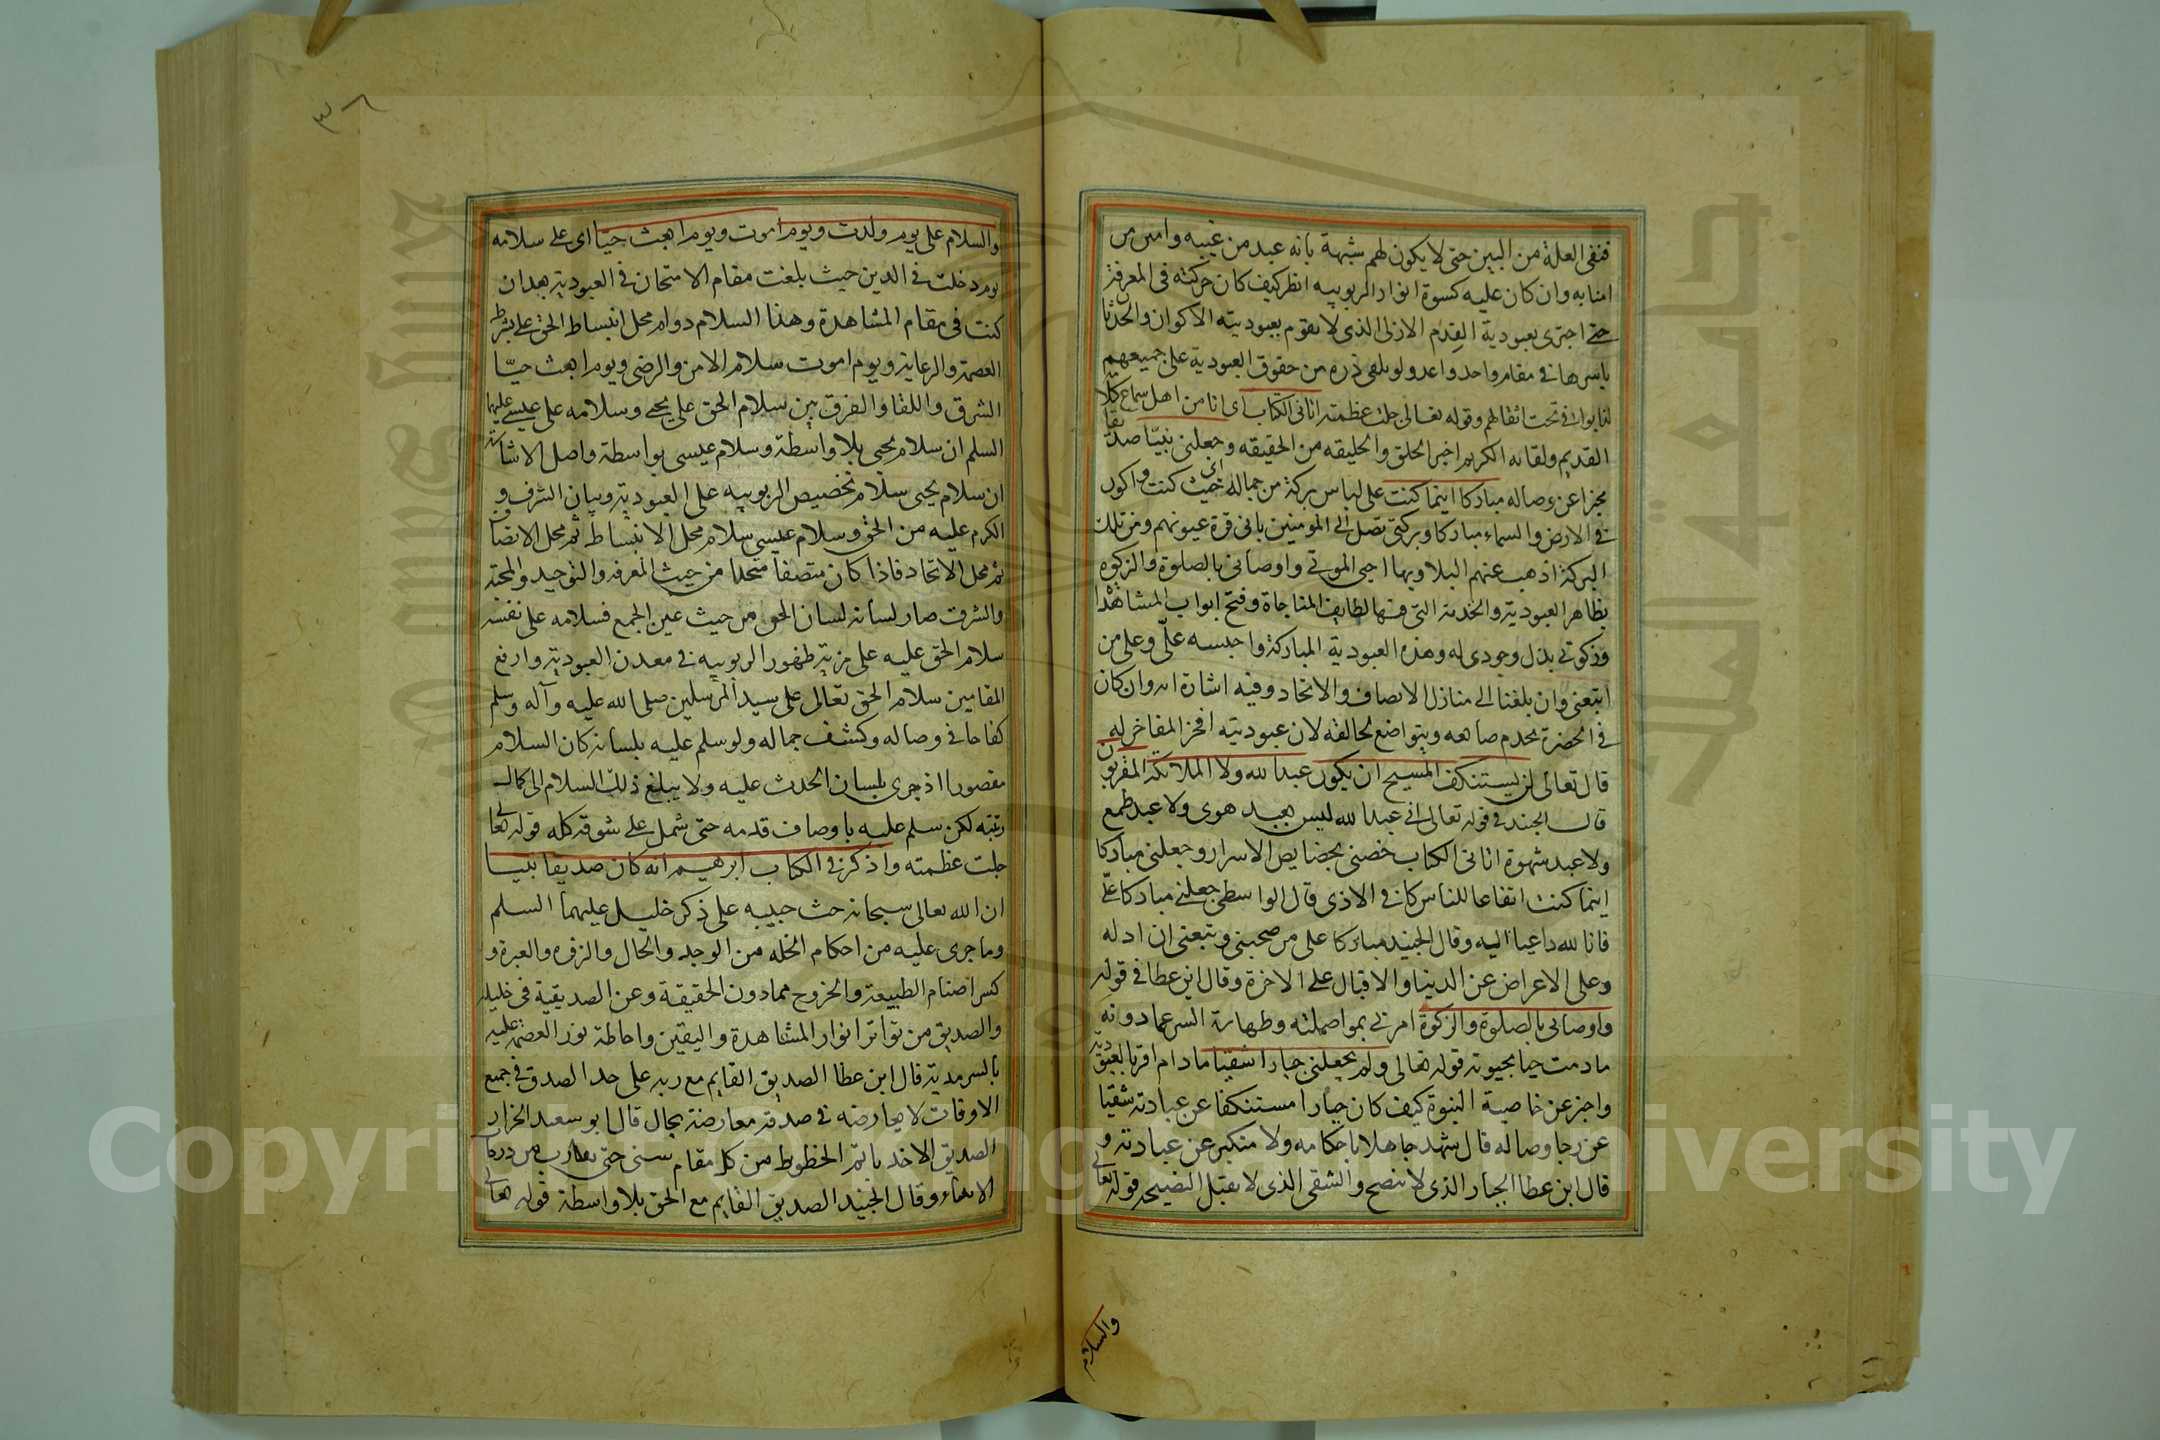 فنفى العلة من البين حتى لا يكون لهم شبهة بانه عبد من غيبه وامن من
امنا به وان كان عليه كسوة انوار الربوبيه انظر كيف كان حركته فى المعرفة
حتى اجترى بعبودية القدم الازلى الذى لا يقوم بعبوديته الاكوان والحدثان
باسرها فى مقام واحد ولو بلقى ذره من حقوق العبودية على جميعهم
لذابوا فى تحت اثقالهم وقوله تعالى جلت عظمته اتانى الكتاب اى انا من اهل سماع كلام
القديم ولقانه الكريم اخبر الخلق والخليقه من الحقيقه وجعلنى نبيّا صدقا
مخبرا عن وصاله مباركا اينما كنت على لباس بركة من جماله اى حيث كنت واكون
فى الارض والسماء مباركا وبركتى تصل الى المومنين بانى قرة عيونهم ومن تلك
البركة اذهب عنهم البلا وبها احيى الموتى واوصانى بالصلوة والزكوة
بظاهر العبودية والخدمة التى فيها لطايف المناجاة وفتح ابواب المشاهدة
وزكوتى بذل وجودى له وهذه العبودية المباركة واجبسه علىّ وعلى من
اتبعنى وان بلغنا الى منازل الاتصاف والاتحاد وفيه اشارة انه وان كان
فى الحضرة يخدم صانعه ويتواضع لخالقه لان عبوديته افخر المفاخر له
قال تعالى لن يستنكف المسيح ان يكون عبدا لله ولا الملائكة المقربون
قال الجنيد فى قوله تعالى انى عبد الله ليس بعبد هوى ولا عبد طمع
ولا عبد شهوة اتانى الكتاب خصنى بخصايص الاسرار وجعلنى مباركا
اينما كنت انفاعا للناس كافى الاذى قال الواسطى جعلنى مباركا علىّ
فانا لله داعيا اليه وقال الجنيد مباركا على من صحبنى وتبعنى ان ادله
وعلى الاعراض عن الدنيا والاقبال على الاخرة وقال ابن عطا فى قوله
واوصانى بالصلوة والزكوة امرنى بمواصلته وطهارة السر عما دونه
ما دمت حيا بحيوته قوله تعالى ولم يجعلنى جبارا شقيا مادام اقر بالعبودية
واخبر عن خاصية النبوة كيف كان جبارا مستنكفا عن عبادته شقيا
عن رجا وصاله قال سهد جاهلا باحكامه ولا متكبر عن عبادته و
قال ابن عطا الجبار الذى لا ينصح والشقى الذى لا يقبل النصيحه قوله تعالى
والسلام
٣٠٦
والسلام على يوم ولدت ويوم اموت ويوم ابعث حيّا اى على سلامه
يوم دخلت فى الدين حيث بلغت مقام الامتحان فى العبودية بعد ان
كنت فى مقام المشاهدة وهذا السلام دوام محل انبساط الحق على شرط
العصمة والرعاية ويوم اموت سلام الامن والرضى ويوم ابعث حيّا
الشرق واللقا والفرق بين سلام الحق على يحيى وسلامه على عيسى عليهما
السلم ان سلام يحيى بلا واسطة وسلام عيسى بواسطة واصل الاشارة
ان سلام يحيى سلام تخصيص الربوبيه على العبودية وبيان الشرف و
الكرم عليه من الحق وسلام عيسى سلام محل الانبساط ثم محل الاتصاف
ثم محل الاتحاد فاذا كان متصفا متحدا من حيث المعرفه والتوحيد والمحبة
والشرف صار لسانه لسان الحق من حيث عين الجمع فسلامه على نفسه
سلام الحق عليه على مزية ظهور الربوبيه فى معدن العبودية وارفع
المقامين سلام الحق تعالى على سيد المرسلين صلى الله عليه وآله وسلم
كفاحا فى وصاله وكشف جماله ولو سلم عليه بلسانه كان السلام
مقصورا اذ جرى بلسان الحدث عليه ولا يبلغ ذلك السلام الى كمال
رتبته لكن سلم عليه باوصاف قدمه حتى شمل على شوقه كله قوله تعالى
جلت عظمته واذكر فى الكتاب ابرهيم انه كان صديقا نبيا
ان الله تعالى سبحانه حث حبيبه على ذكر خليل عليهما السلم
وما جرى عليه من احكام الخله من الوجد والحال والزفره والعبرة و
كسر اصنام الطبيعة والخروج مما دون الحقيقة وعن الصديقية فى خليله
والصديق من تواتر انوار المشاهدة واليقين واحاطة نور العصمة عليه
بالسرمدية قال ابن عطا الصديق القايم مع ربه على حد الصدق فى جميع
الاوقات لا يعارضه فى صدقه معارضة بحال قال ابو سعيد الخراز
الصديق الاخذ باتم الحظوظ من كل مقام سنى حتى يقارب من درجات
الانبياء وقال الجنيد الصديق القايم مع الحق بلا واسطة قوله تعالى
Copyright © King Saud University